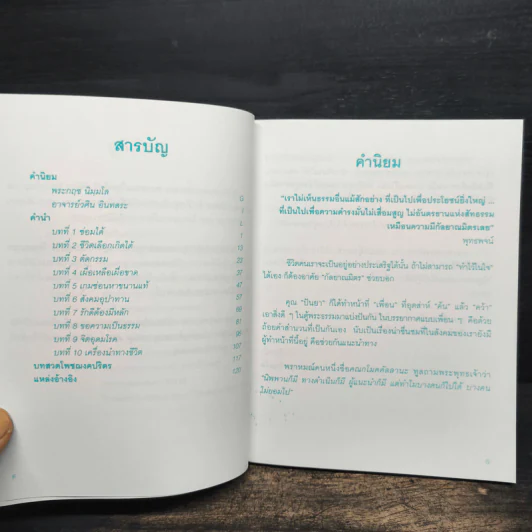 สารบัญ
คำนิยม
พระกฤช นิมฺมโล
อาจารย์วศิน อินทสระ
คำนำ
บทที่ 1 ซ่อมได้ 1
บทที่ 2 ชีวิตเลือกเกิดได้ 13
บทที่ 3 ตัดกรรม 23
บทที่ 4 เผื่อเหลือเผื่อขาด 37
บทที่ 5 เกมซ่อนหาขนานแท้ 47
บทที่ 6 สังคมอุปาทาน 57
บทที่ 7 รักดีต้องมีหลัก
บทที่ 8 ขอความเป็นธรรม
บทที่ 9 จิตอุดมโรค
บทที่ 10 เครื่องนำทางชีวิต 107
บทสวดโพชฌงคปริตร 117
แหล่งอ้างอิง 120
คำนิยม
"เราไม่เห็นธรรมอื่นแม้สักอย่าง ที่เป็นไปเพื่อประโยชน์ยิ่งใหญ่ ...
ที่เป็นไปเพื่อความดำรงมั่นไม่เสื่อมสูญ ไม่อันตรธานแห่งสัทธรรม
เหมือนความมีกัลยาณมิตรเลย"
พุทธพจน์
ชีวิตคนเราจะเป็นอยู่อย่างประเสริฐได้นั้น ถ้าไม่สามารถ "ทำไว้ในใจ"
ได้เอง ก็ต้องอาศัย "กัลยาณมิตร" ช่วยบอก
คุณ "ปันยา" ก็ได้ทำหน้าที่ "เพื่อน" ที่อุตส่าห์ "ค้น" แล้ว "คว้า"
เอาสิ่งดี ๆ ในสู่พระธรรมมาแบ่งปันกัน ในบรรยากาศแบบเพื่อน ๆ คือด้วย
ถ้อยคำสำนวนที่เป็นกันเอง นับเป็นเรื่องน่าชื่นชมที่ในสังคมของเรายังมี
ผู้ทำหน้าที่นี้อยู่ คือช่วยกันแนะนำทาง
พราหมณ์คนหนึ่งชื่อคณกโมคคัลลานะ ทูลถามพระพุทธเจ้าว่า
"นิพพานก็มี ทางดำเนินก็มี ผู้แนะนำก็มี แต่ทำไมบางคนก็ไปได้ บางคน
ไม่ยอมไป"